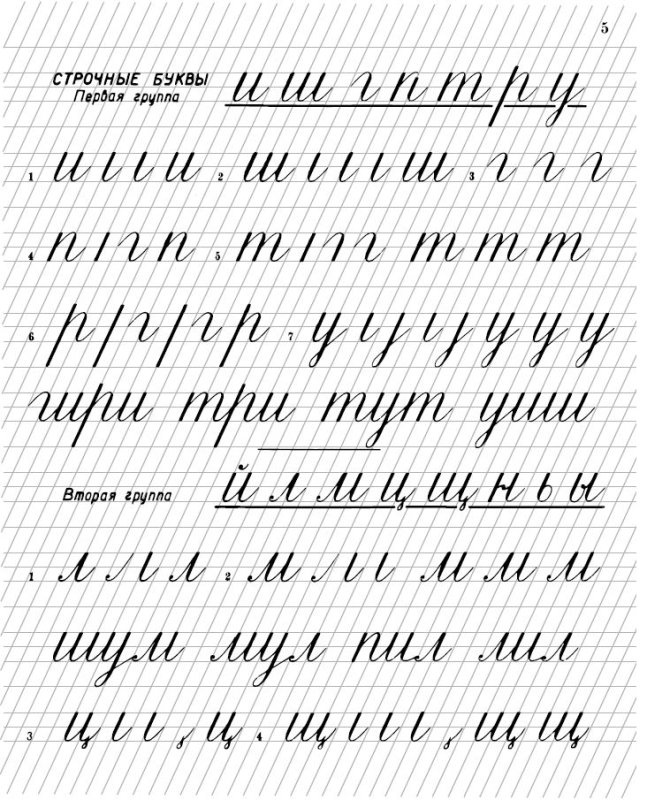 5
СТРОЧНЫЕ БУКВЫ
Первая группа и ш г п т р у
1 и и 2 ш ш 3 г г г
4 п г п 5 т г г т т т
6 р г г р 7 у у у у
гири три тут уши
Вторая группа й л м ц щ н ь ы
1 л л л 2 м л м м м
шум мул пил лил
3 ц , ц 4 щ , щ щ